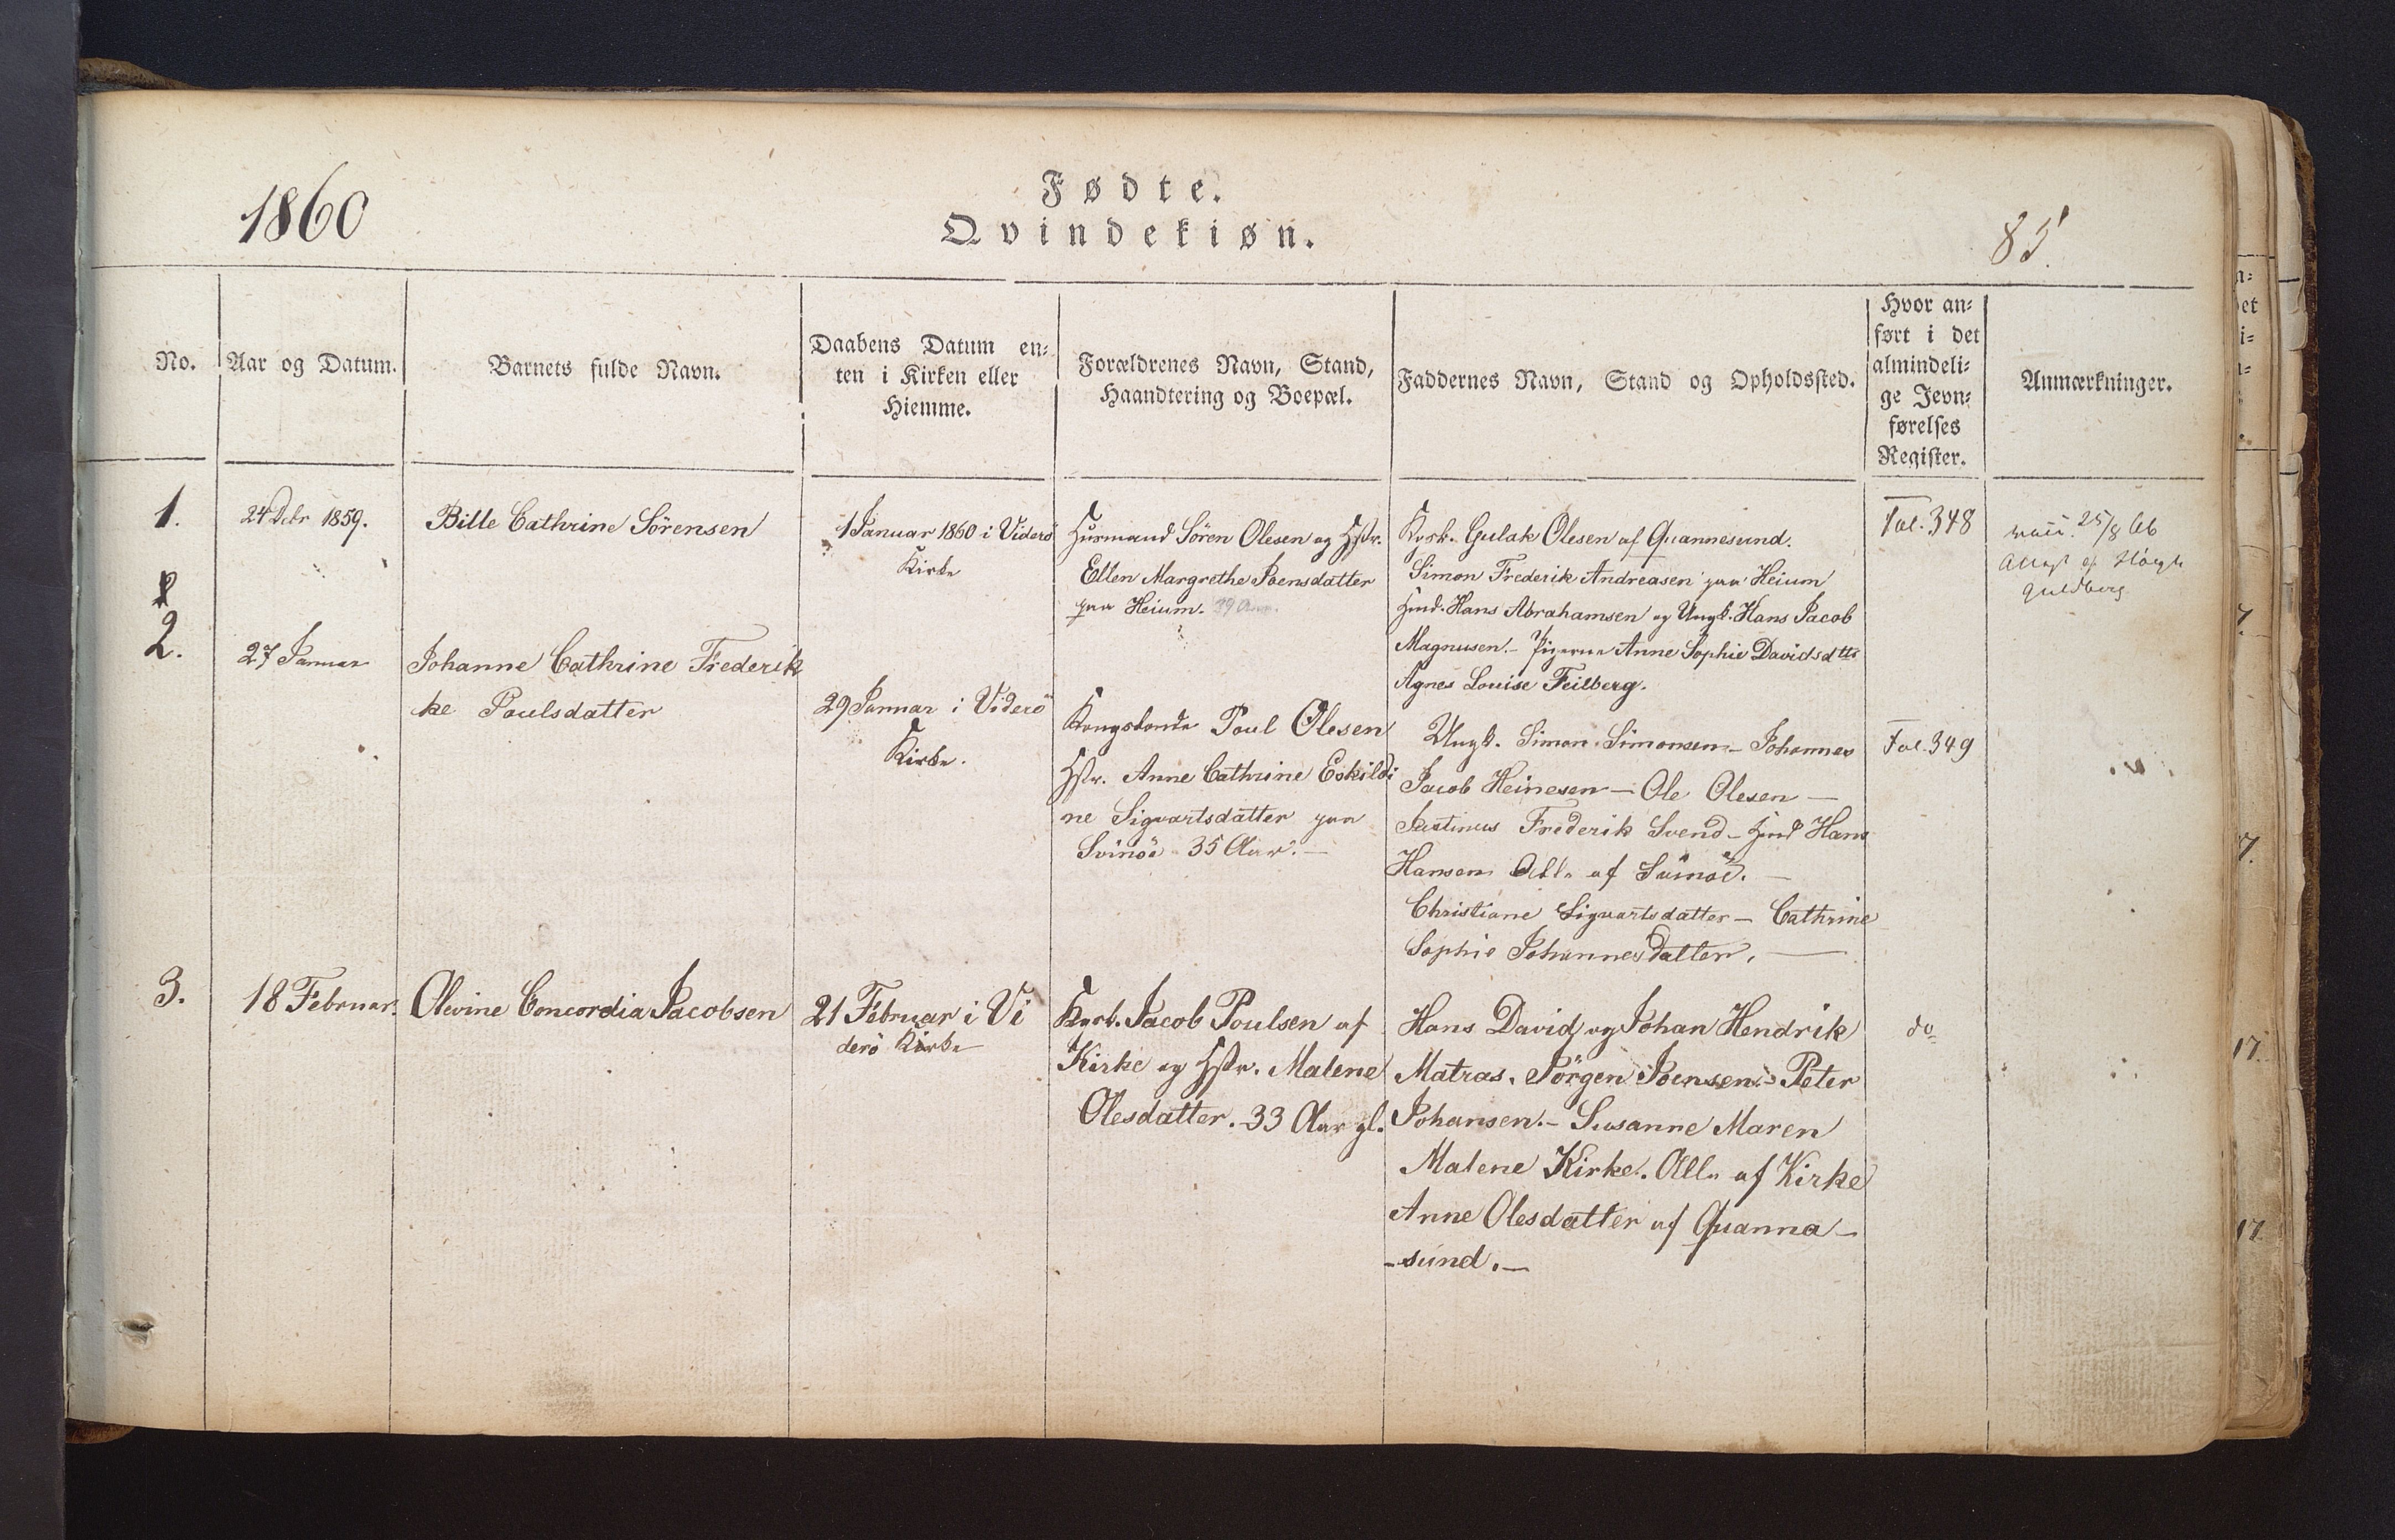 1860
Fødte.
Qvindekiøn.
85.
No.
Aar og Datum.
Barnets fulde Navn.
Daabens Datum en-
ten i Kirken eller
Hiemme.
Forældrenes Navn, Stand,
Haandtering og Boepæl.
Faddernes Navn, Stand og Opholdssted.
Hvor an-
ført i det
almindeli-
ge Jevn-
førelses
Register.
Anmærkninger.
1.
24 Debr 1859.
Bille Cathrine Sörensen
1 Januar 1860 i Viderö
Kirke
Huusmand Sören Olesen og Hstr.
Ellen Margrethe Joensdatter
paa Heium. 39 Aar.
Kgsb. Gulak Olesen af Quannesund.
Simon Frederik Andreasen paa Heium
Hans Abrahamsen og Ungk. Hans Jacob
Magnusen. – Pigerne Anne Sophie Davidsdttr
Agnes Louise Feilberg.
Fol. 348
25/8
Guldberg
2.
27 Januar
Johanne Cathrine Frederik
ke Poulsdatter
29 Januar i Viderö
Kirke.
Kongsbonde Poul Olesen
Hstr. Anne Cathrine Eskildi
ne Sigvartsdatter paa
Svinöe 35 Aar. –
Ungk. Simon Simonsen – Johannes
Jacob Heinesen – Ole Olesen –
Justinus Frederik Svend – Hans
Hansen Alle af Svinöe. –
Christiane Sigvartsdatter – Cathrine
Sophie Johannesdatter. –
Fol. 349
3.
18 Februar.
Olevine Concordia Jacobsen
21 Februar i Vi
derö Kirke
Kgsb. Jacob Poulsen af
Kirke og Hstr. Malene
Olesdatter. 33 Aar gl.
Hans David og Johan Hendrik
Matras. Jörgen Joensen – Peter
Johansen. – Susanne Maren
Malene Kirke. Alle af Kirke
Anne Olesdatter af Quanna –
– sund. –
do